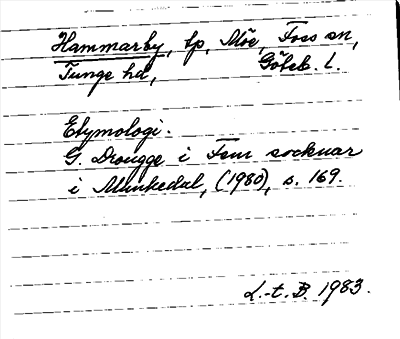 Hammarby, tp, Möe, Foss sn,
Tunge hd, Göteb. l.
Etymologi.
G. Drougge i Fem socknar
i Munkedal, (1980), s. 169.
L.-t. B. 1983.